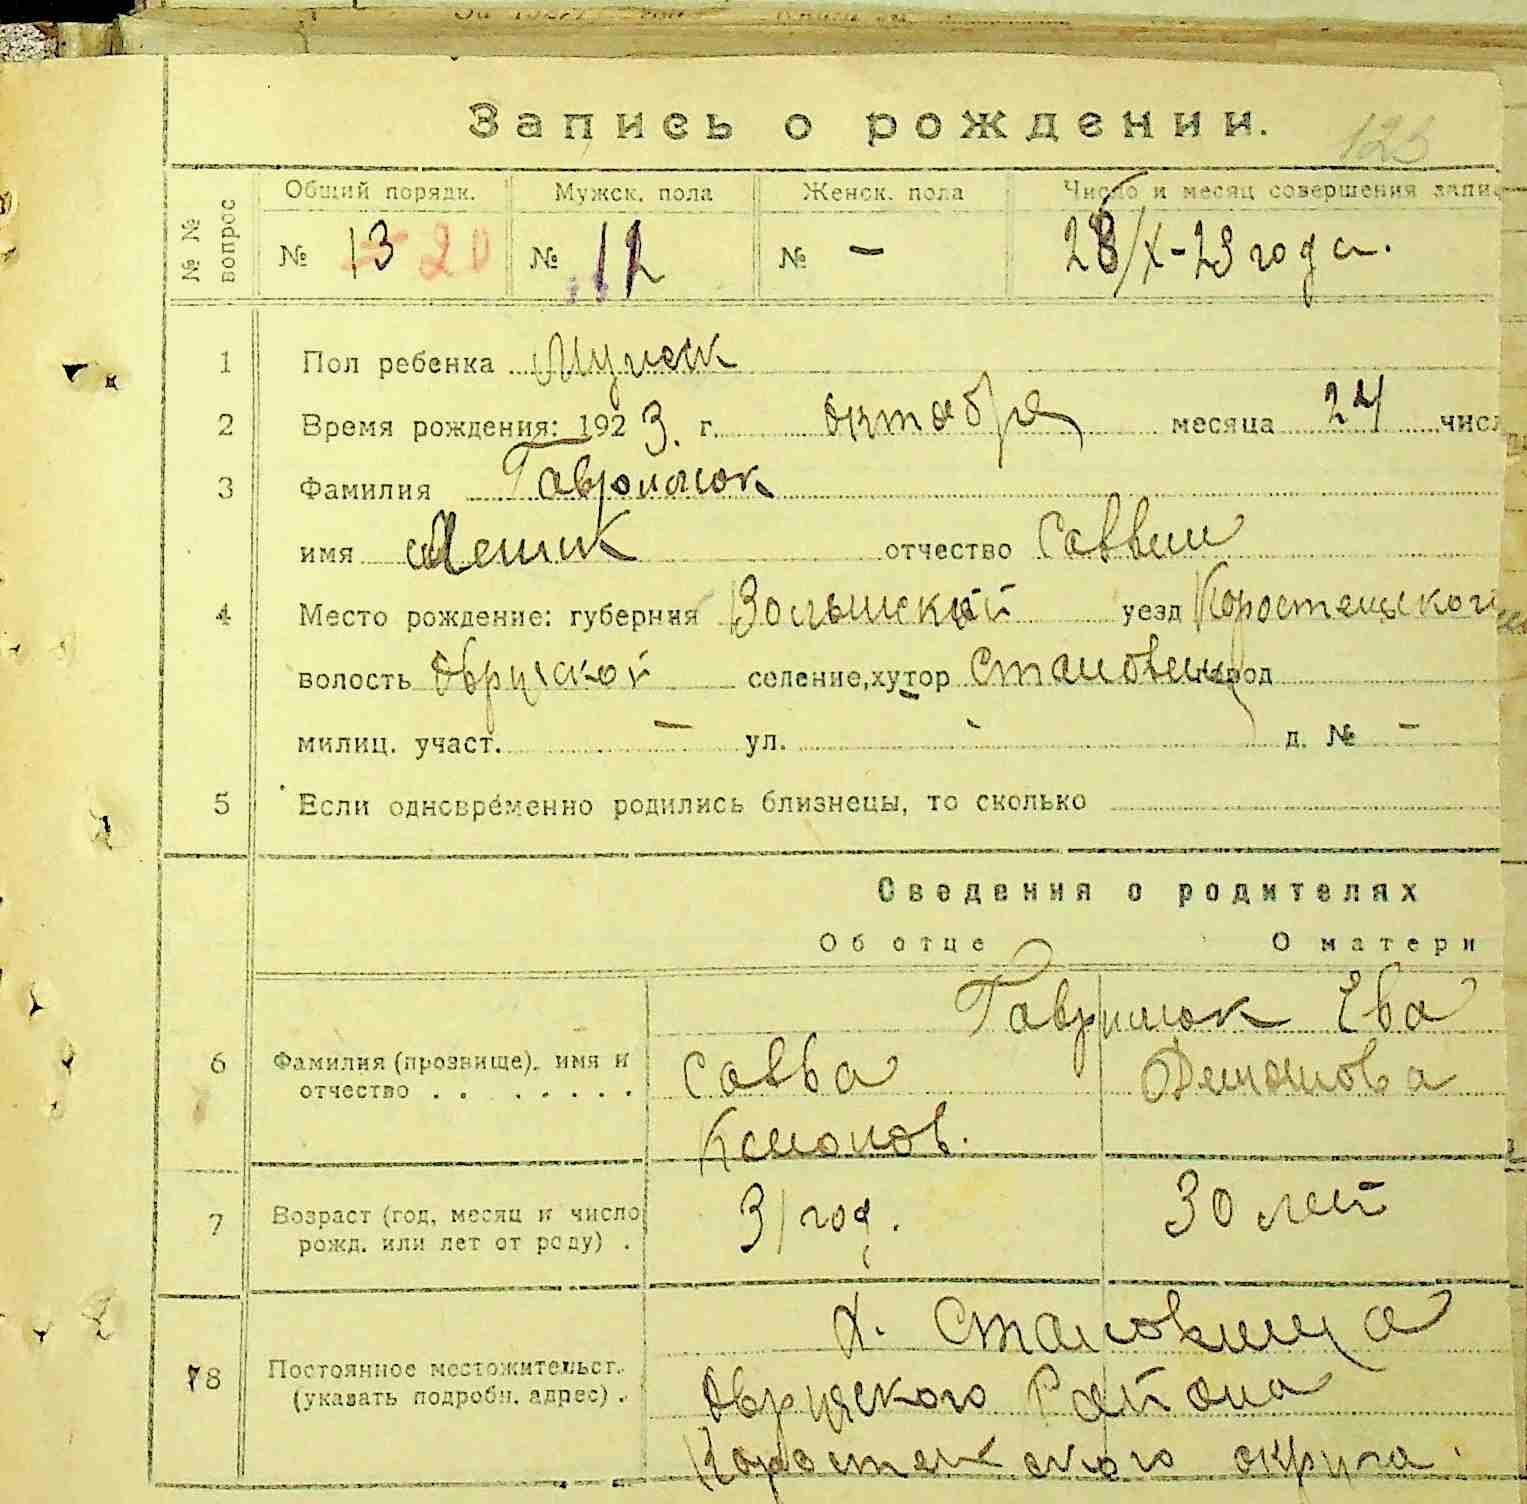 Запись о рождении.
123
№ № вопрос
Общий порядк. Мужск. пола Женск. пола Число и месяц совершения запис
№ 13 20 № 12 № – 28/X-23 года.
1 Пол ребенка Мужск
2 Время рождения: 1923. г. октября месяца 24 числ
3 Фамилия Гаврилюк
имя отчество Саввин
4 Место рождение: губерния Волынской уезд Коростенского
волость Овручской селение, хутор Становище город
милиц. участ. – ул. – д. № –
5 Если одновременно родились близнецы, то сколько
Сведения о родителях
Об отце О матери
Гаврилюк Ева
6 Фамилия (прозвище), имя и Савва
отчество . . . . . . .
7 Возраст (год, месяц и число 31 год. 30 лет
рожд. или лет от роду) .
78 Постоянное местожительст. х. Становище
(указать подробн. адрес) . Овруцкого Района
Коростенского округа.